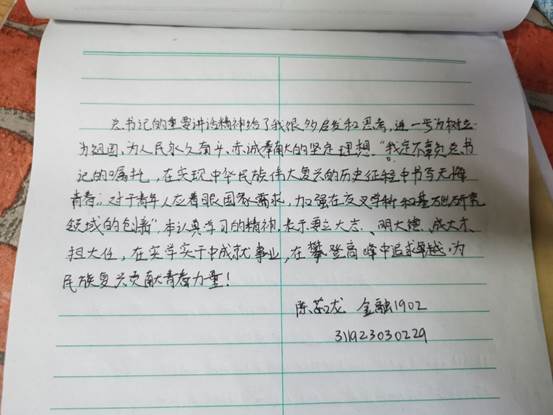 总书记的重要讲话精神给了我很多启发和思考,进一步为树立
为祖国、为人民永久奋斗、赤诚奉献的坚定理想。"我定不辜负总书
记的嘱托,在实现中华民族伟大复兴的历史征程中书写无悔
青春。对于青年人应着眼国家需求,加强在交叉学科和基础研究
领域的创新"本认真学习的精神,表示要立大志、明大德、成大才、
担大任,在实学实干中成就事业,在攀登高峰中追求卓越,为
民族复兴贡献青春力量!
陈龙 金融1902
311923030229